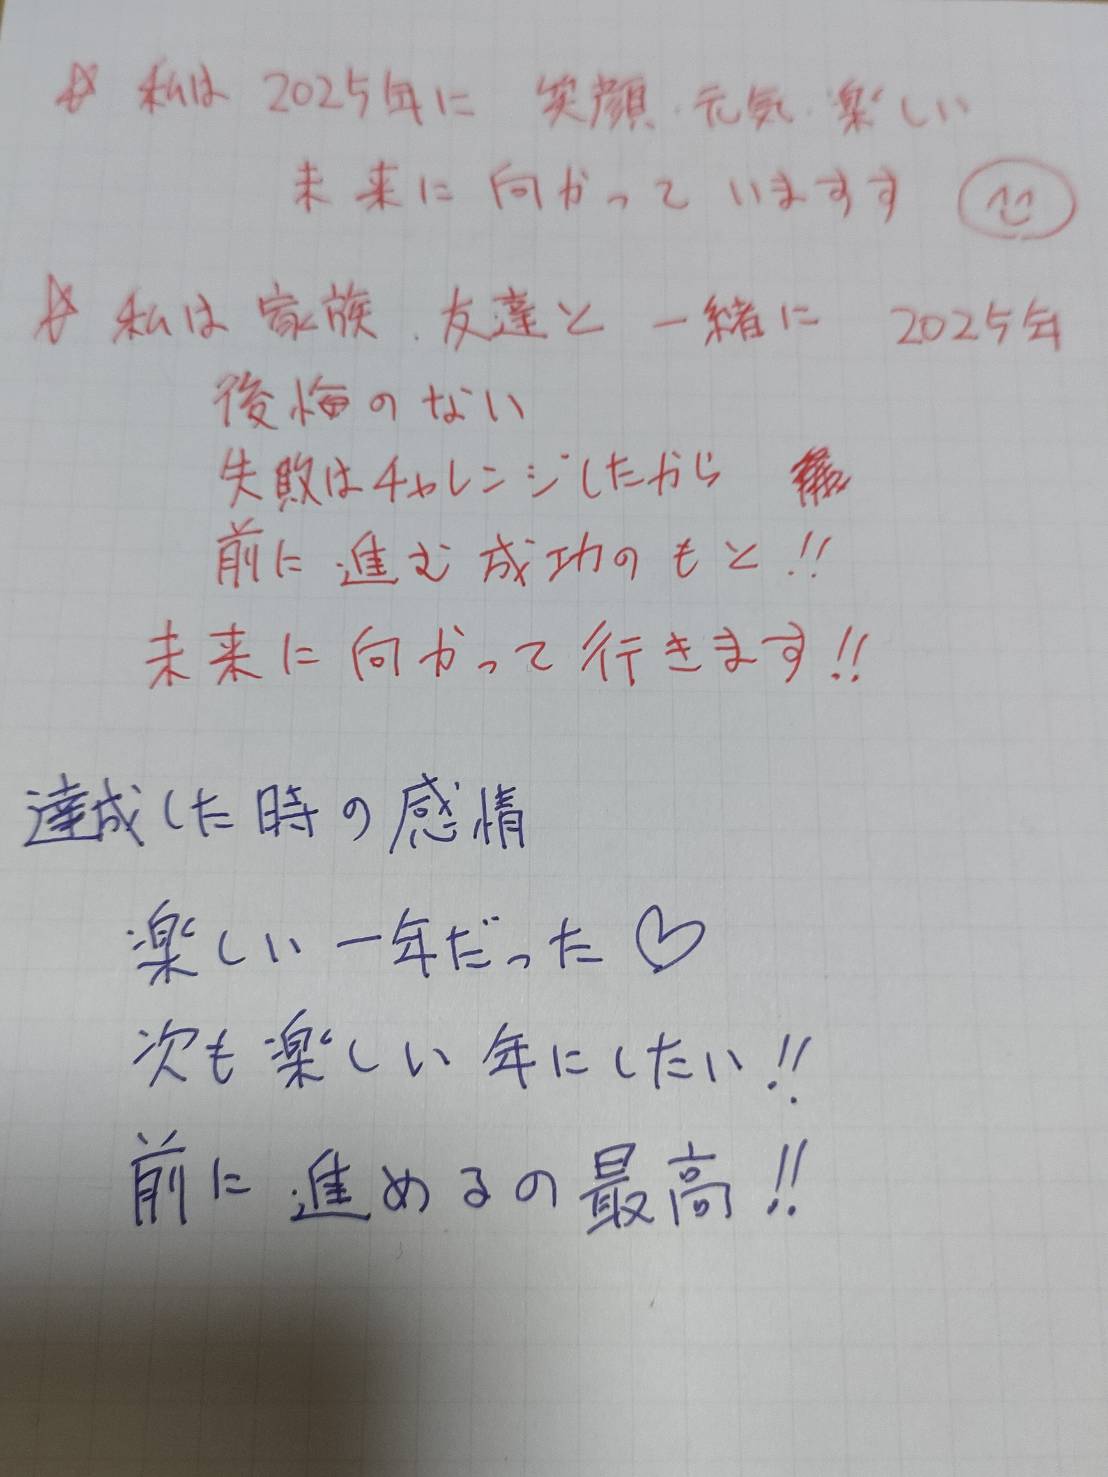 ☆ 私は 2025年に 笑顔・元気・楽しい
未来に向かっていますす
☆ 私は家族・友達と一緒に 2025年
後悔のない
失敗はチャレンジしたから
前に進む成功のもと!!
未来に向かって行きます!!
達成した時の感情
楽しい一年だった♡
次も楽しい年にしたい!!
前に進めるの最高!!